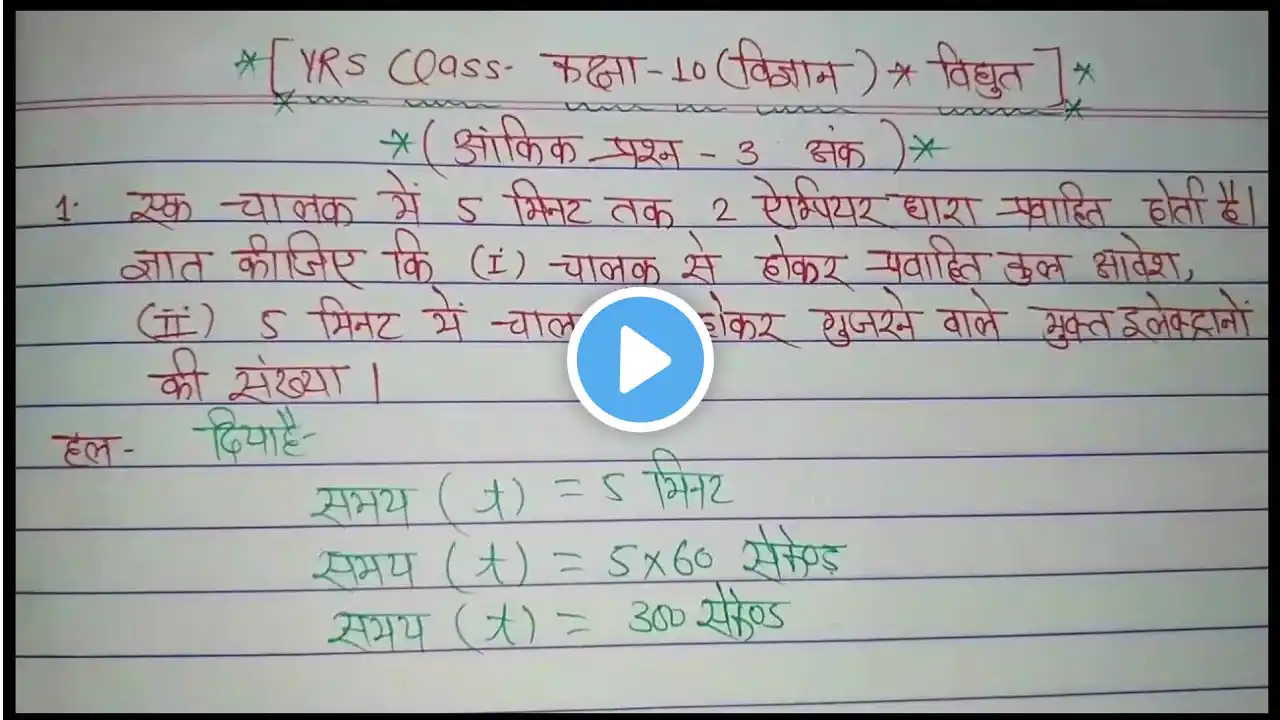 *[ YRS Class- कक्षा-10 (विज्ञान) * विद्युत ]*
*( आंकिक प्रश्न - 3 अंक )*
1. एक चालक में 5 मिनट तक 2 ऐम्पियर धारा प्रवाहित होती है।
ज्ञात कीजिए कि (I) चालक से होकर प्रवाहित कुल आवेश,
(II) 5 मिनट में चाल होकर गुजरने वाले मुक्त इलेक्ट्रानों
की संख्या।
हल- दिया है-
समय (t) = 5 मिनट
समय (t) = 5×60 सेकेण्ड
समय (t) = 300 सेकेण्ड